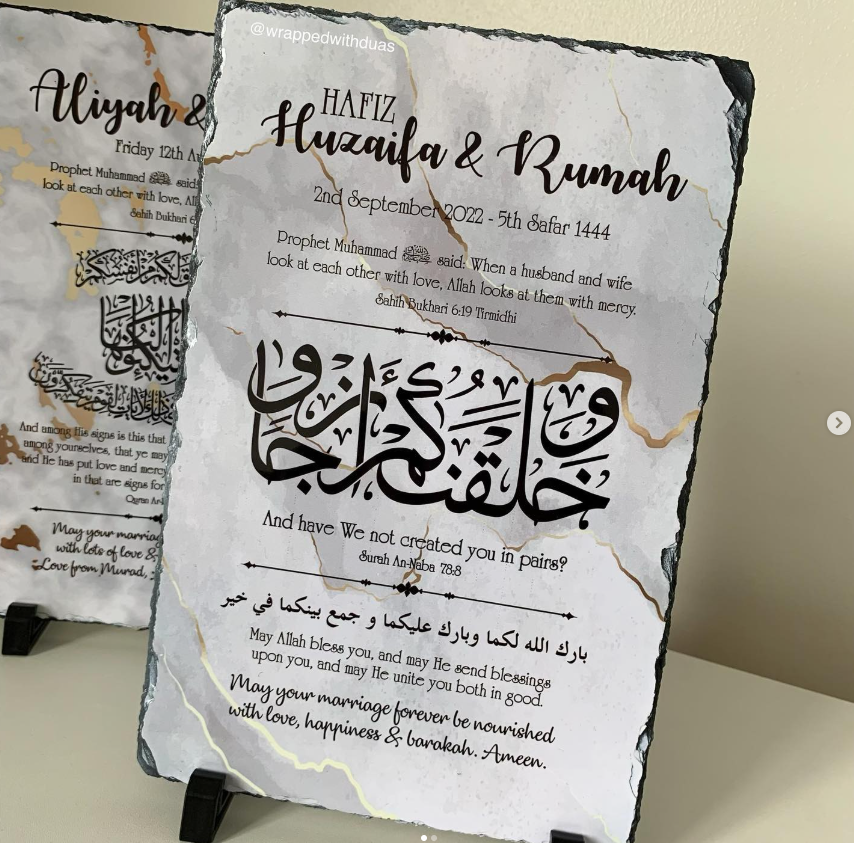 @wrappedwithduas
HAFIZ
Huzaifa & Rumah
2nd September 2022 - 5th Safar 1444
Prophet Muhammad ﷺ said: When a husband and wife
look at each other with love, Allah looks at them with mercy.
Sahih Bukhari 6:19 Tirmidhi
وخلقنكم أزوجا
And have We not created you in pairs?
Surah An-Naba 78:8
بارك الله لكما وبارك عليكما و جمع بينكما في خير
May Allah bless you, and may He send blessings
upon you, and may He unite you both in good.
May your marriage forever be nourished
with love, happiness & barakah. Ameen.
Aliyah &
Friday 12th
Prophet Muhammad ﷺ said
look at each other with love,
Sahih Bukhari
And among His signs is this that
among yourselves, that ye may
and He has put love and mercy
in that are signs for
Quran
May your
with lots of love &
Love from Murad,